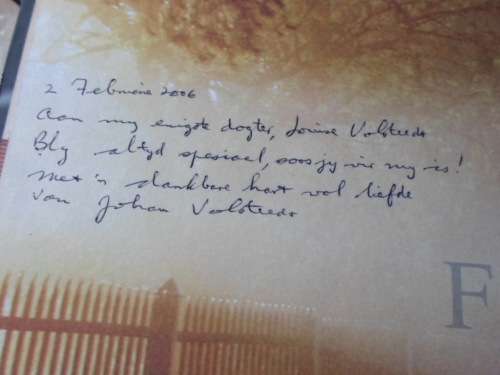 2 Februarie 2006
Aan my enigste dogter, Louise Volsteedt
Bly altyd spesiaal, soos jy vir my is!
Met 'n dankbare hart vol liefde
van Johan Volsteedt
F